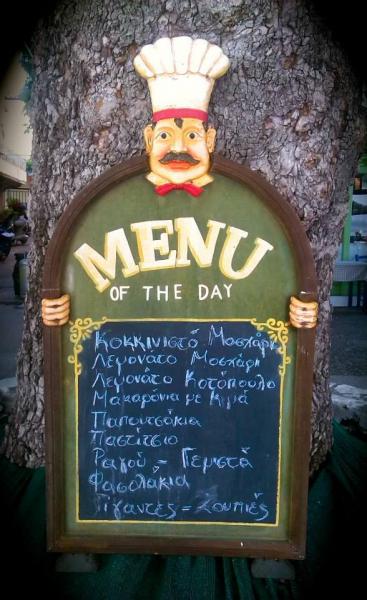 MENU
OF THE DAY
Κοκκινιστό Μοσχάρι
Λεμονάτο Μοσχάρι
Λεμονάτο Κοτόπουλο
Μακαρόνια με Κιμά
Παπουτσάκια
Παστίτσιο
Ραγού - Γεμιστά
Φασολάκια
Γίγαντες - Σουπιές